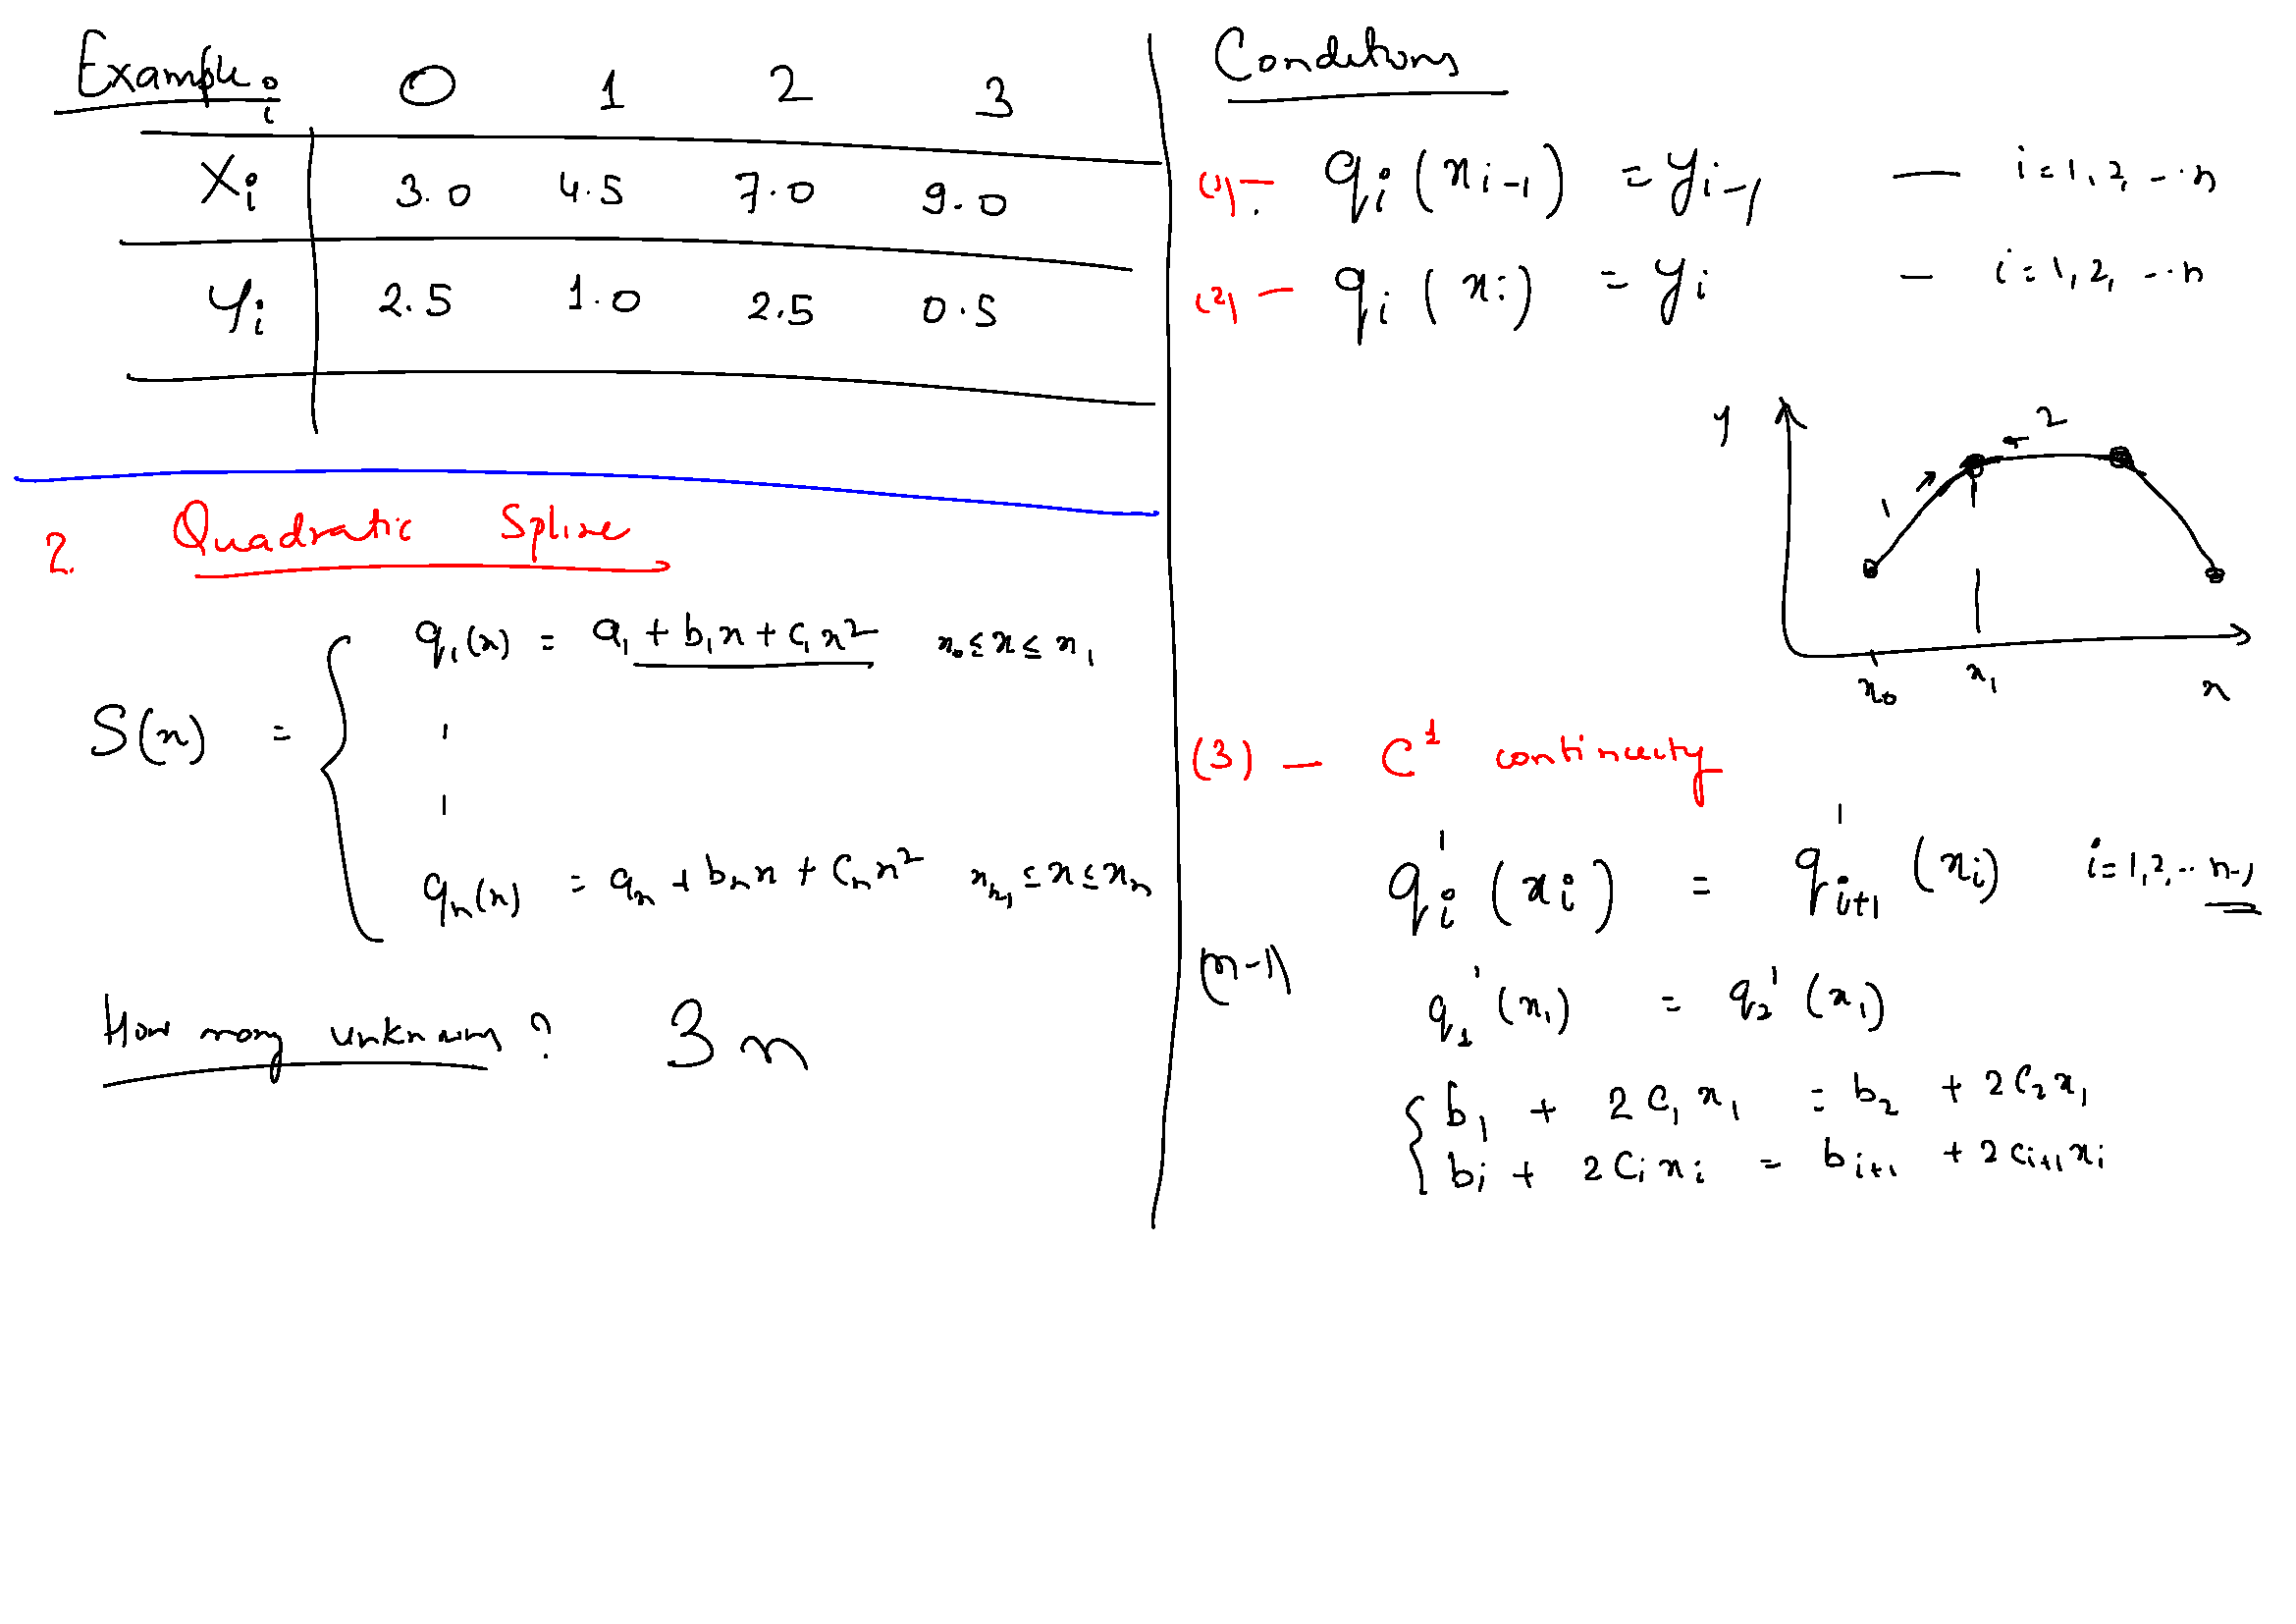 Example:
i 0 1 2 3
xi 3.0 4.5 7.0 9.0
yi 2.5 1.0 2.5 0.5
2. Quadratic Spline
S(x) = { q₁(x) = a₁ + b₁x + c₁x² x₀ ≤ x ≤ x₁
qₙ(x) = aₙ + bₙx + cₙx² xₙ₋₁ ≤ x ≤ xₙ
How many unknowns? 3n
Conditions
(1) - qᵢ(xᵢ₋₁) = yᵢ₋₁ — i=1,2,..n
(2) - qᵢ(xᵢ) = yᵢ — i=1,2,..n
y
1
2
x₀ x₁ x
(3) - C¹ continuity
qᵢ'(xᵢ) = q'ᵢ₊₁(xᵢ) i=1,2,..n-1
(n-1)
q₁'(x₁) = q₂'(x₁)
{ b₁ + 2c₁x₁ = b₂ + 2c₂x₁
bᵢ + 2cᵢxᵢ = bᵢ₊₁ + 2cᵢ₊₁xᵢ